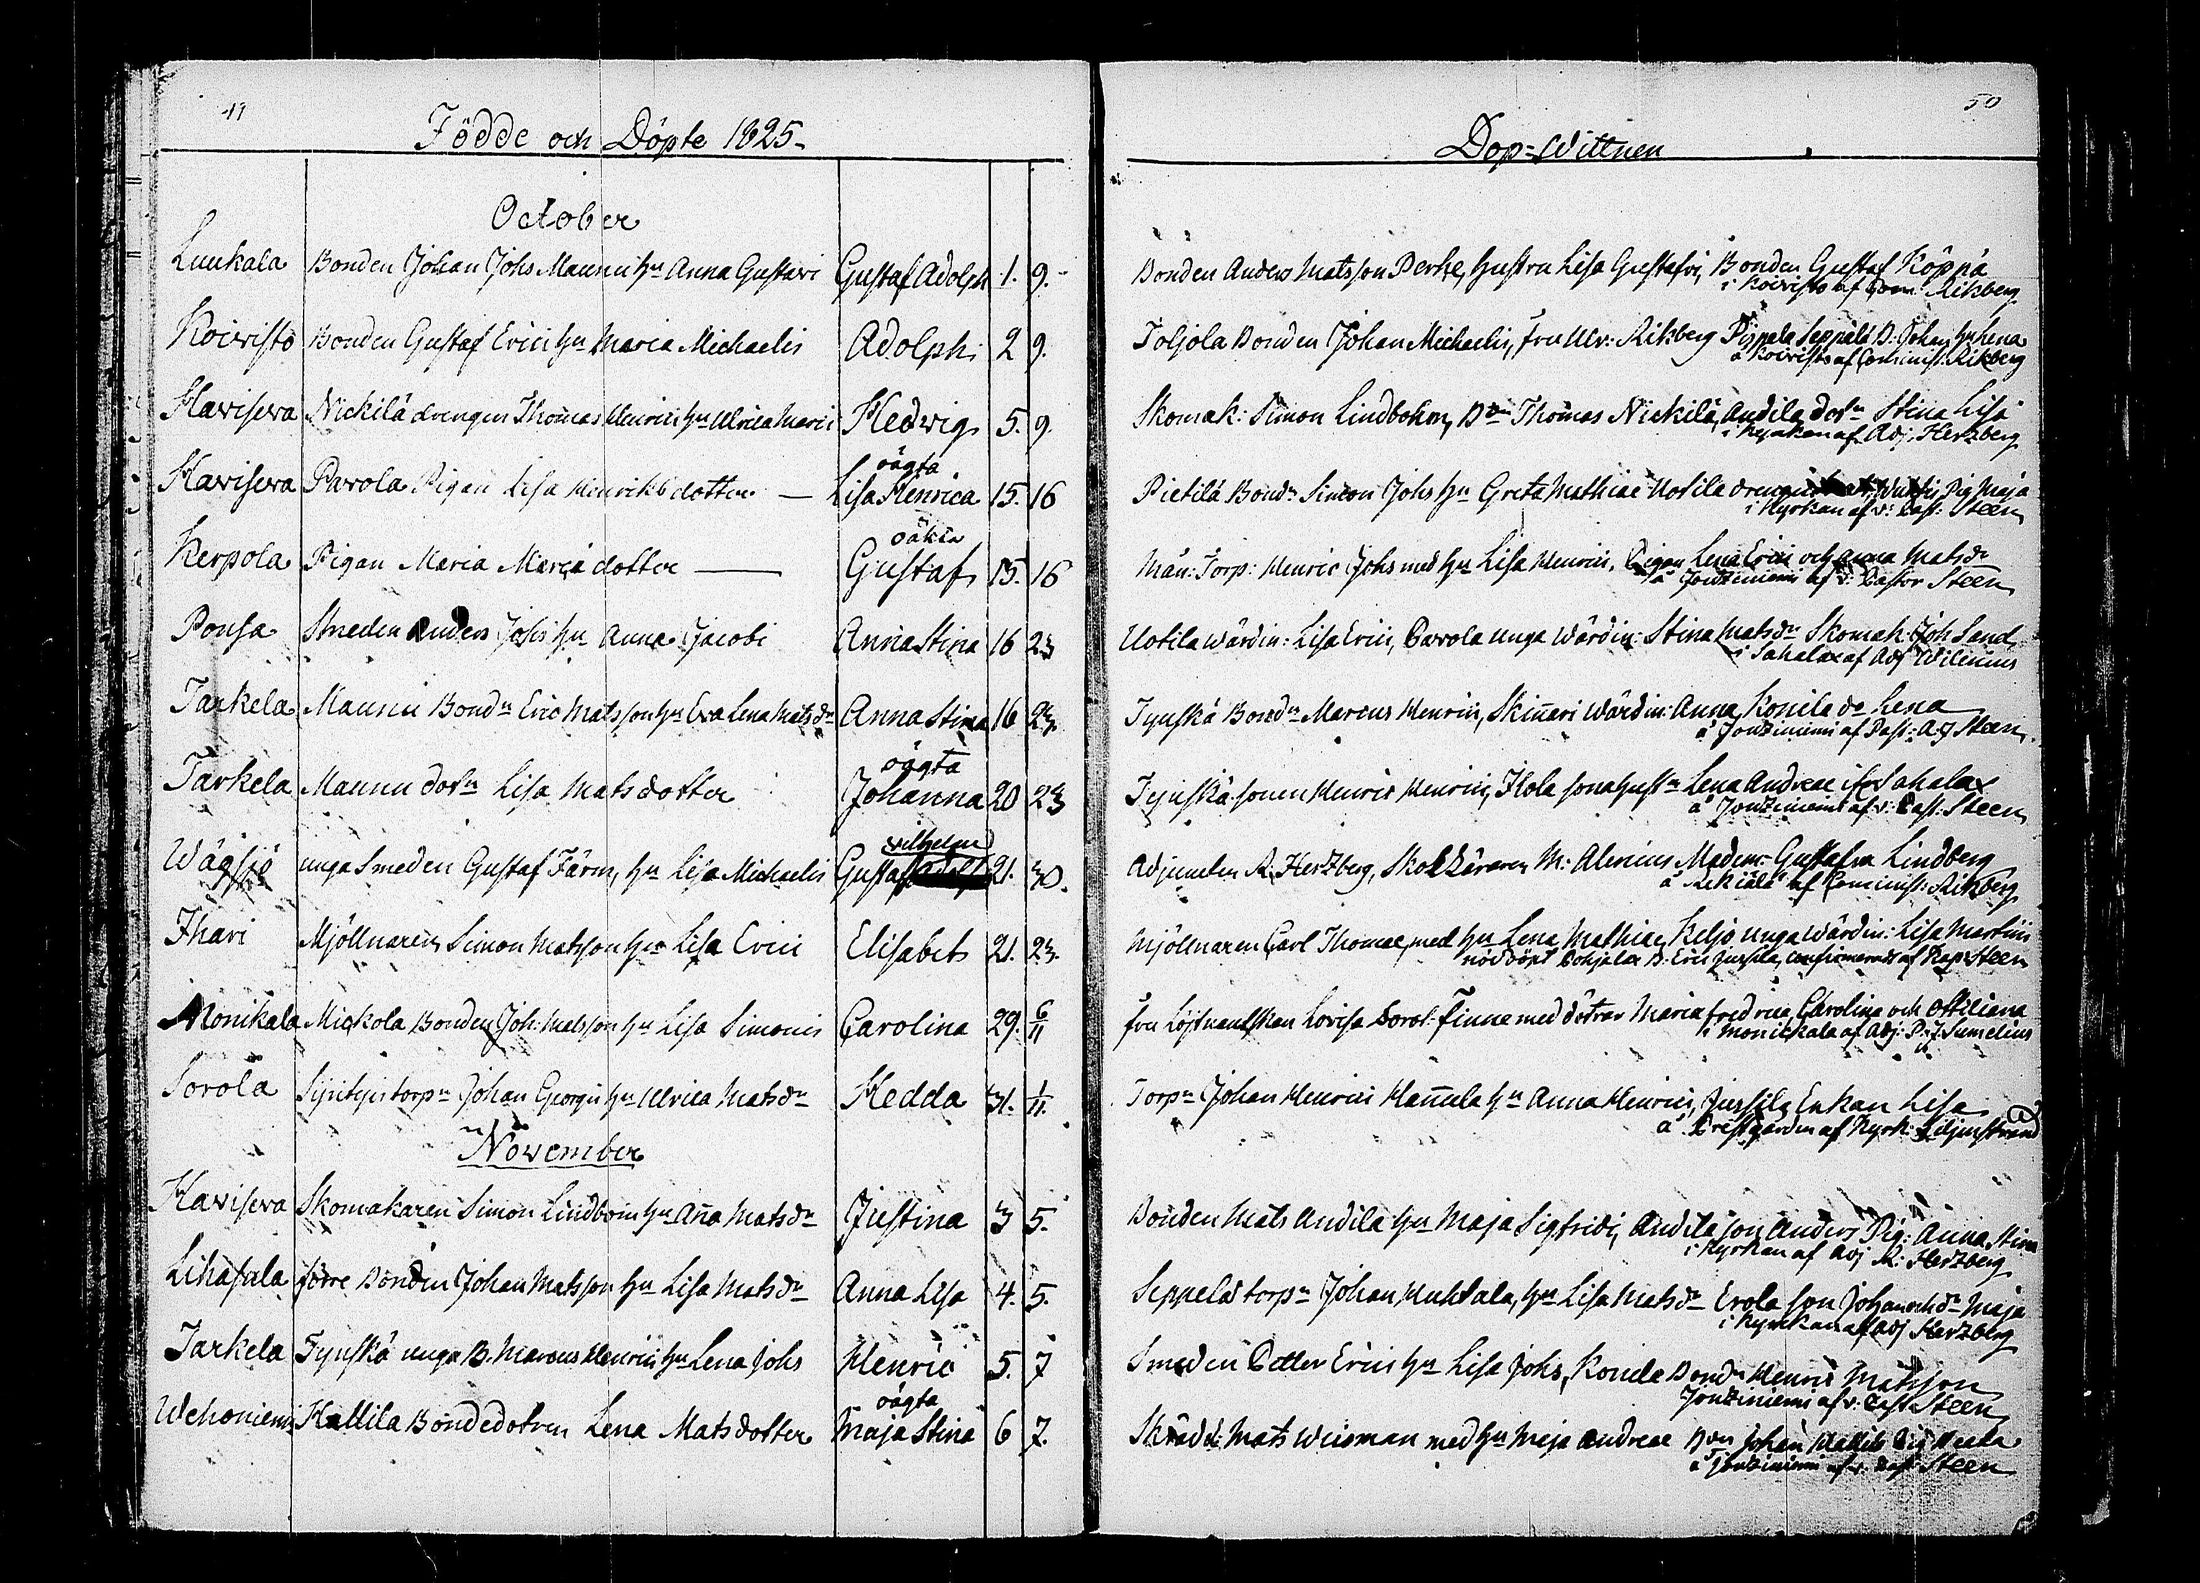 49
Födde och Döpte 1825.
October
Luukala Bonden Johan Johs Maunu hu Anna Gustavi Gustaf Adolph 1. 9.
Koivisto Bonden Gustaf Erici hu Maria Michaelis Adolph 2 9.
Haviseva Nickilä drengen Thomas Henrici hu Ulrica Marci Hedvig 5. 9.
oägta
Haviseva Parola Pigan Lisa Henriksdotter — Lisa Henrica 15. 16
oäkta
Kerpola Pigan Maria Maria dotter — Gustaf 15. 16
Pousa Smeden Anders Johs hu Anna Jacobi Anna Stina 16 23
Tarkela Maunu Bondn Eric Matsson hu Eva Lena Matsdr Anna Stina 16 23.
oägta
Tarkela Maunu dotn Lisa Matsdotter Johanna 20 23
vilhelm
Wägsjö unga Smeden Gustaf Färm, hu Lisa Michaelis Gustaf 21. 30.
Ihari Mjöllnaren Simon Matsson hu Lisa Erici Elisabet 21. 23.
Monikala Mickola Bonden Joh: Matsson hu Lisa Simonis Carolina 29. 6/11
Sorola torpn Johan Georgii hu Ulrica Matsdr Hedda 31. 1/11.
November
Haviseva Skomakaren Simon Lindbom hu Aña Matsdr Justina 3 5.
Lihasula förre Bonden Johan Matsson hu Lisa Matsdr Anna Lisa 4. 5.
Tarkela Tynskä unga B. Marcus Henrici hu Lena Johs Henric 5. 7
oägta
Wehoniemi Hallila Bondedotren Lena Matsdotter Maja Stina 6 7.
50
Dop=Wittnen
Bonden Anders Matsson Perhe, hustru Lisa Gustafvi, Bonden Gustaf Köppä
i Koivisto af Com: Rikberg
Toljola Bonden Johan Michaelis, fru Ulr: Rikberg Pippola Seppälä B. Johan hu Lena
å Koivisto af Comminist: Rikberg
Skomak: Simon Lindbohm, Thomas Nickilä, Andila dotn Stina Lisa
i Kyrkan af Adj. Herzberg
Pietilä Bondn Simon Johs hu Greta Mathiae Uotila drengen Pig Maja
i Kyrkan af v: Past: Steen
Torp: Henric Johs med hu Lisa Henrici, Pigan Lena Erici och Anna Matsdr
å Joutziniemi af v: Pastor Steen
Uotila Wärdin: Lisa Erici, Parola unga Wärdin: Stina Matsdr Skomak: Joh Sand
i Sahalax af Adj Wilenius
Tynskä Bondn Marcus Henrici, Skinnari Wärdin: Anna, Konila dr Lena
å Joutziniemi af Past: Adj Steen
Tynskä sonen Henric Henrici, Hola sonahustn Lena Andreae ifr Sahalax
å Joutziniemi af v: Past. Steen
Adjuncten A. Herzberg, Skolläraren M: Alenius Madem: Gustafva Lindberg
å Rekiälä af Comminist: Rikberg
Mjöllnaren Carl Thomae, med hu Lena Mathiae, Keljo unga Wärdin: Lisa Martini
nöddöpt Pohjala B. Eric Jussila, confirmerad af Kap: Steen
fru Löjtnantskan Lovisa Dorot: Finne med dötrar Maria Fredrica, Carolina och Ottiliana
i Monickala af Adj: P: J. Sumelius
Torpn Johan Henrici Hannula hu Anna Henrici, Jussila Enkan Lisa
å Prestgården af Kyrk: Liljenstrand
Bonden Mats Andila hu Maja Sigfridi, Andila son Anders Pig: Anna Stina
i Kyrkan af Adj A: Herzberg
Seppelä torpn Johan Huhtala, hu Lisa Matsdr Erola son Johan och dr Maja
i Kyrkan af Adj Herzberg
Smeden Petter Erici hu Lisa Johs, Konila Bondn Henric Matsson
Joutziniemi af v: Past Steen
Skrädd: Mats Weisman med hu Maja Andreae Johan Hallila Pig
å Joutziniemi af v: Past Steen